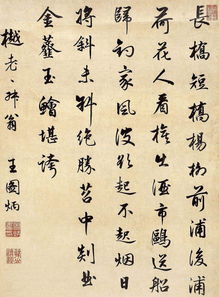 長橋短橋楊柳前浦後浦
荷花人看旗出酒市鷗送船
歸釣家風波欲起不起烟日
將斜未斜絶勝苕中剡曲
金虀玉鱠堪誇
樾老丶
王圖炳